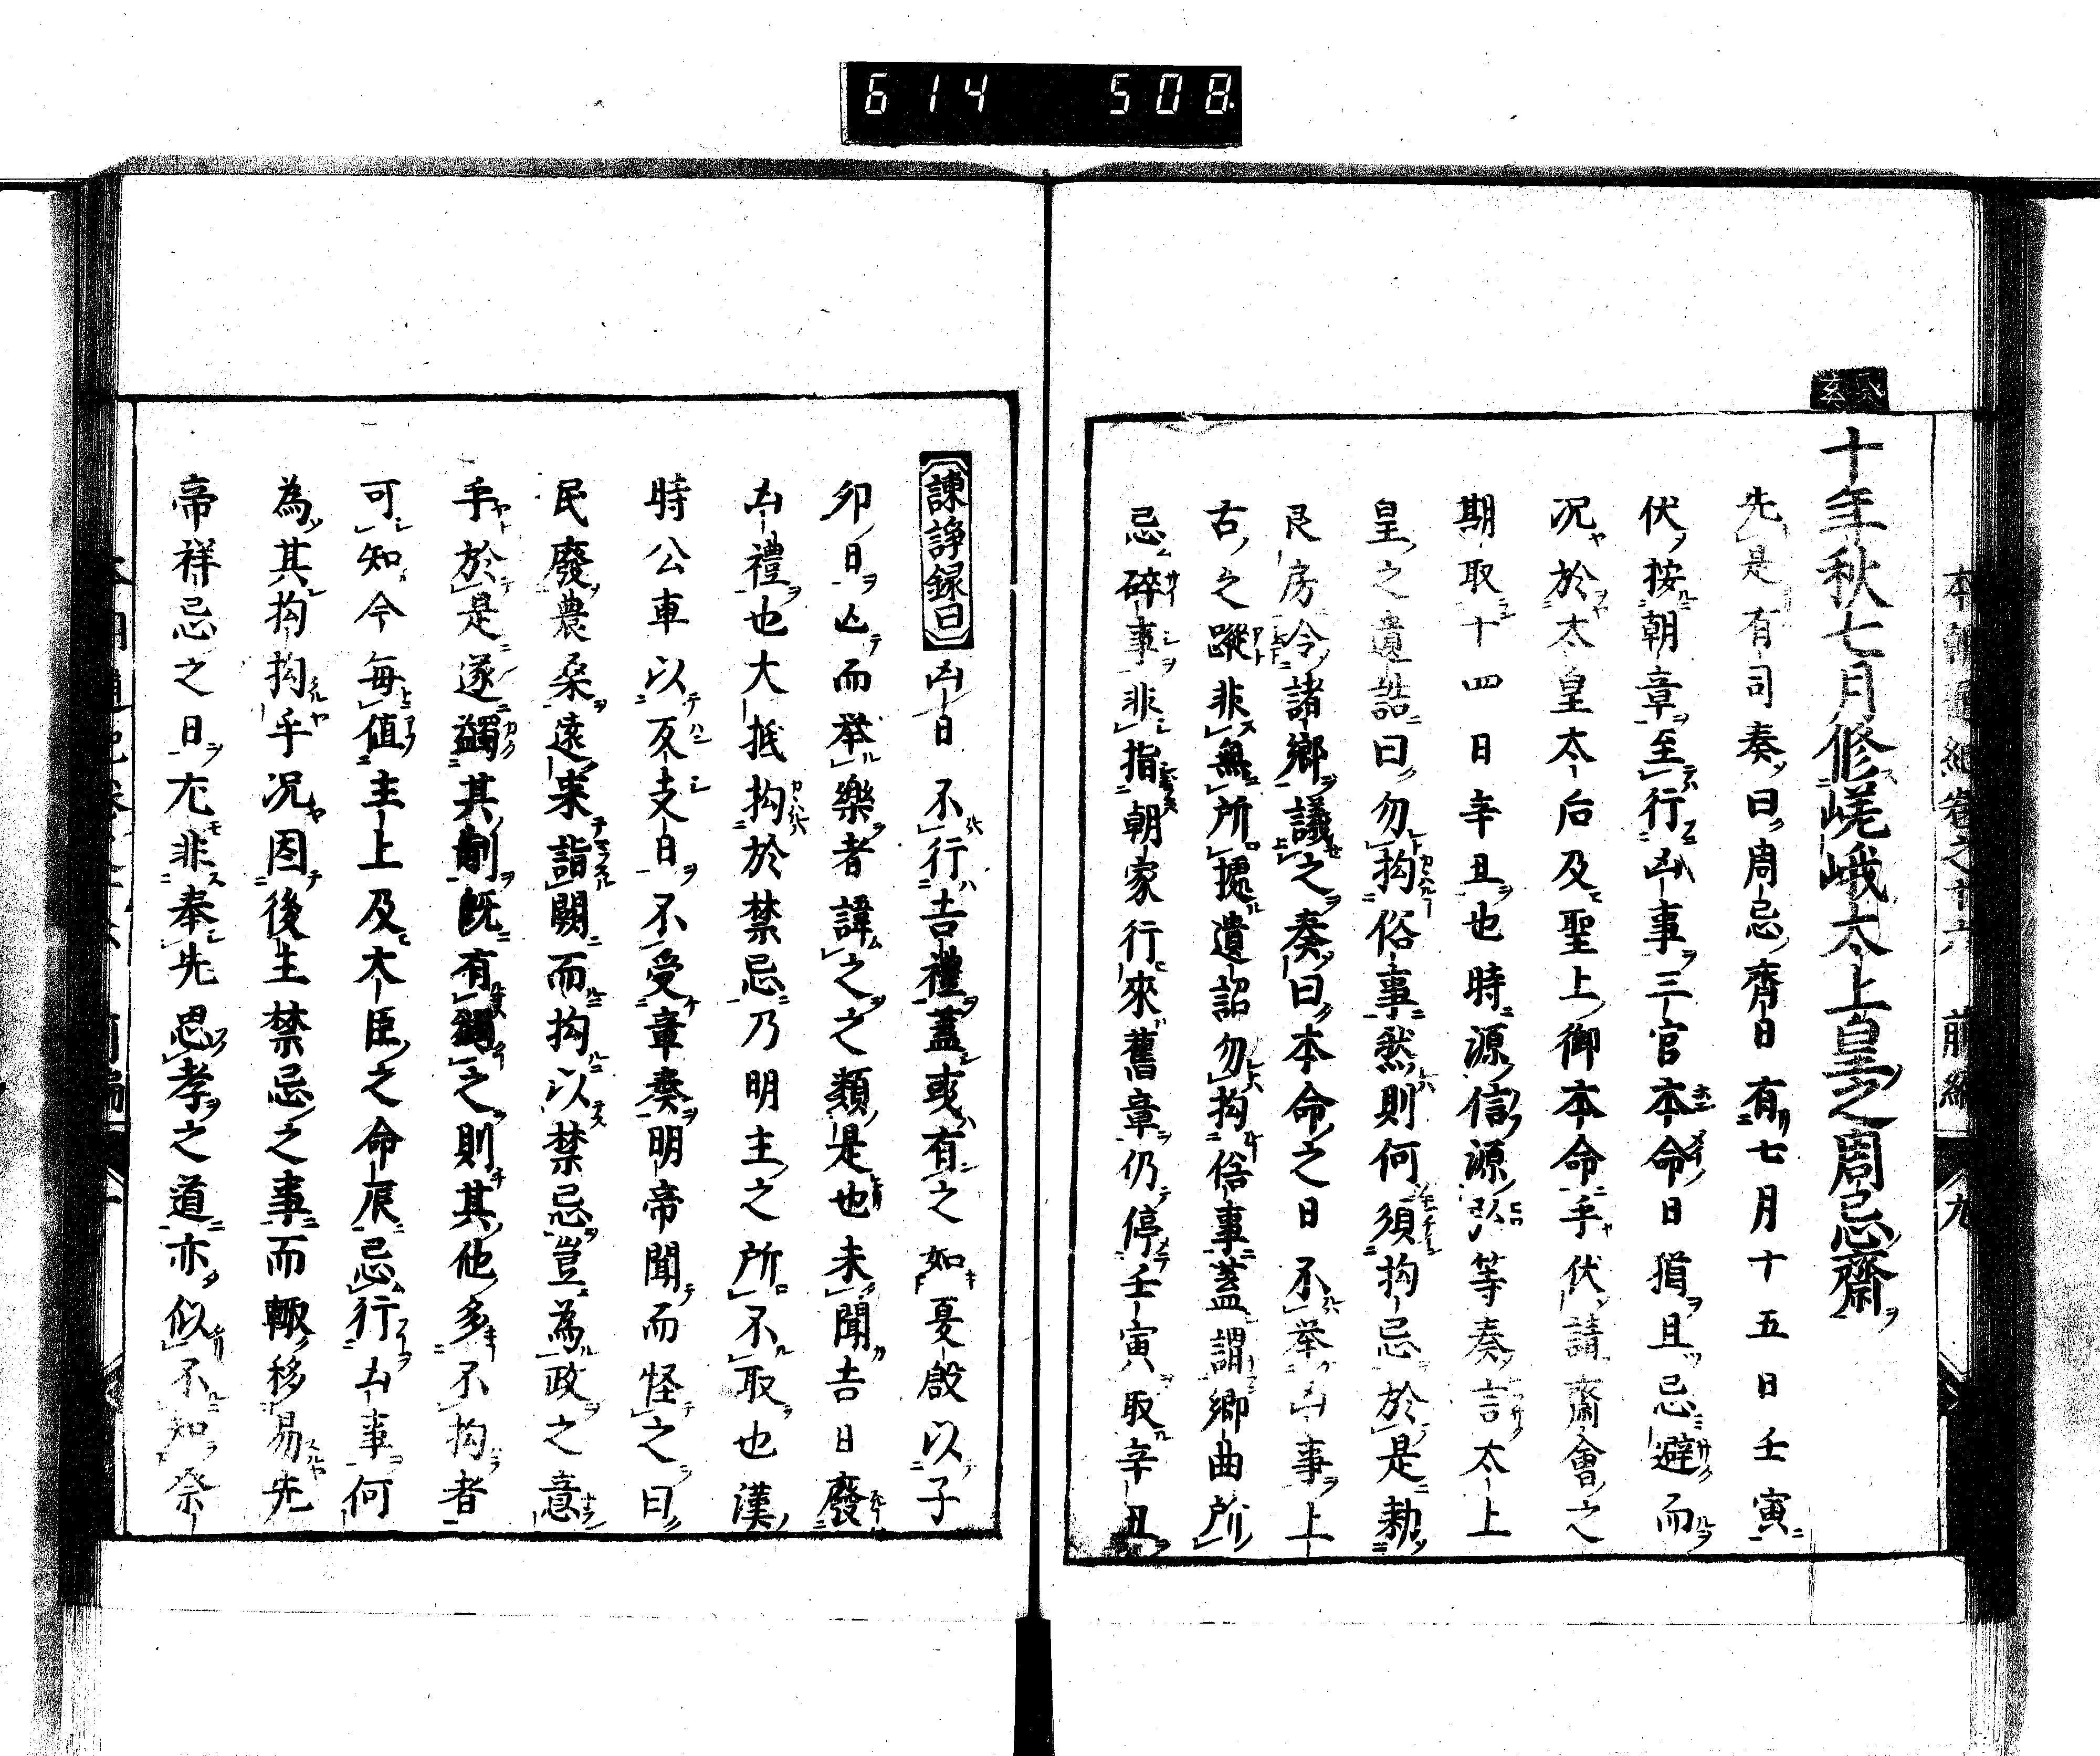 614 508
本朝通紀卷之廿六 前編 九
癸亥
十年秋七月修嵯峨太上皇之周忌齋
先是有司奏曰周忌齊日有七月十五日壬寅
伏按朝章至行凶事三官本命日猶且忌避而
况於太皇太后及聖上御本命乎伏請齋會之
期取十四日辛丑也時源信源弘等奏言太上
皇之遺誥曰勿拘俗事然則何須拘忌於是勅
艮房令諸鄉議之奏曰本命之日不举凶事上
古之蹤非無所據遺詔勿拘俗事蓋謂鄉曲所
忌碎事非指朝家行來舊章仍停壬寅取辛丑
諫諍録曰凶日不行吉禮蓋或有之如夏殷以子
卯日亾而举樂者諱之之類是也未聞吉日廢
凶禮也大抵拘於禁忌乃明主之所不取也漢
時公車以反支日不受章奏明帝聞而怪之曰
民廢農桒遠来詣闕而拘以禁忌豈為政之意
乎於是遂蠲其制既有蠲之則其他多不拘者
可知今每値主上及大臣之命辰忌行凶事何
為其拘拘乎况因後生禁忌之事而輙移易先
帝祥忌之日尤非奉先思孝之道亦似不知祭